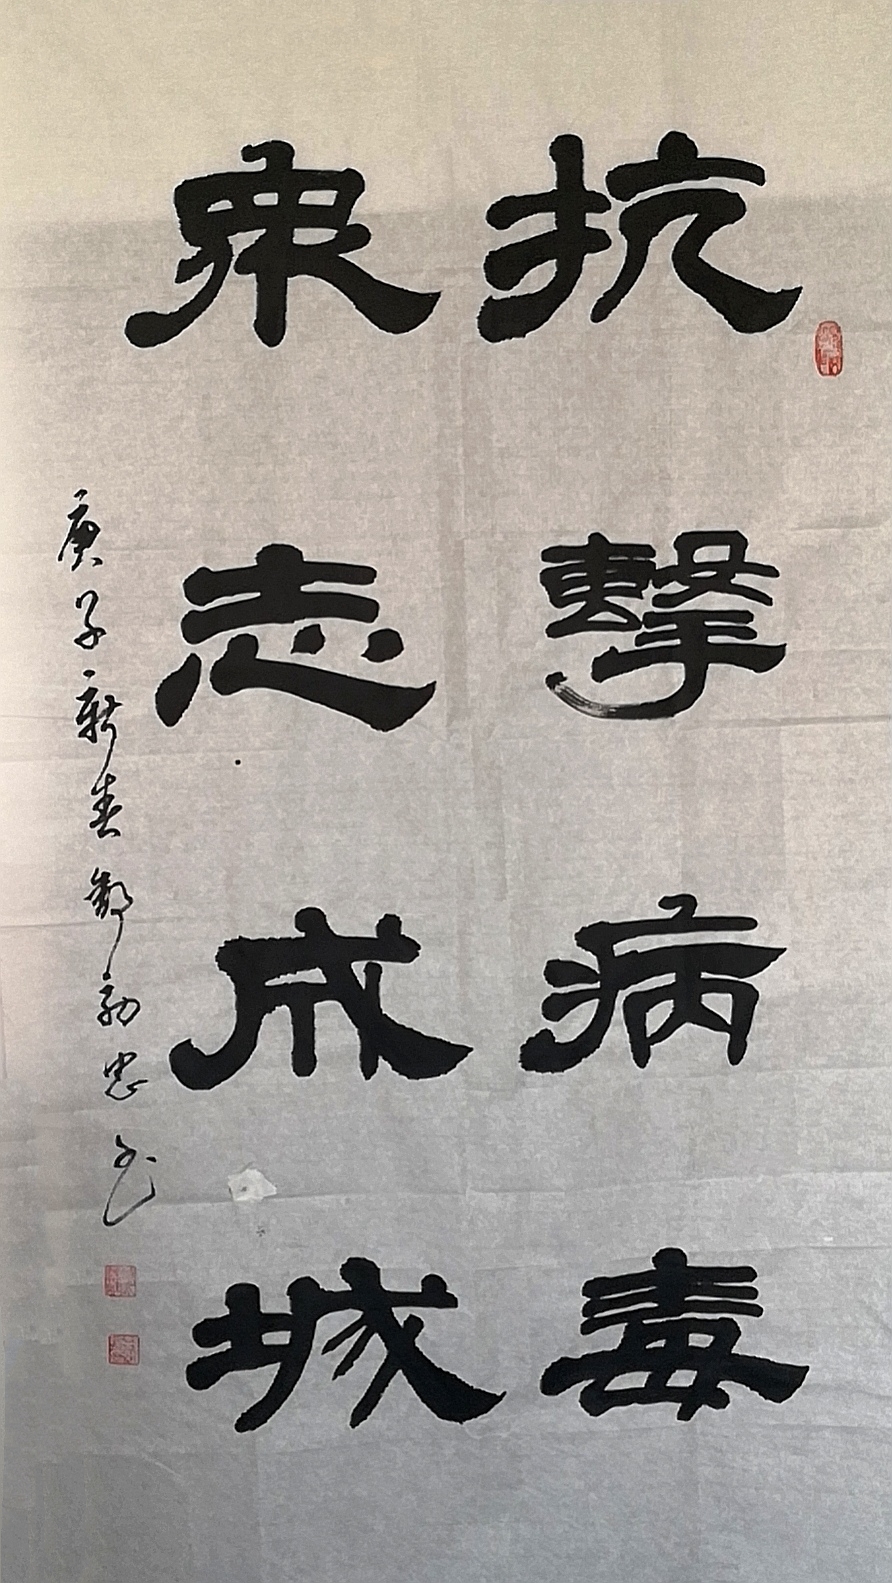 抗擊病毒
衆志成城
庚子新春鄭勋忠书